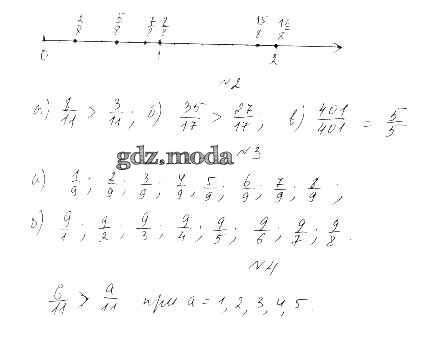 2/8 5/8 7/8 8/8 15/8 16/8
0 1 2
№2
а) 8/11 > 3/11; б) 35/17 > 27/17, в) 401/401 = 5/5
gdz.moda №3
а) 1/9; 2/9; 3/9; 4/9; 5/9; 6/9; 7/9; 8/9;
б) 9/1; 9/2; 9/3; 9/4; 9/5; 9/6; 9/7; 9/8.
№4
6/11 > a/11 при a = 1, 2, 3, 4, 5.